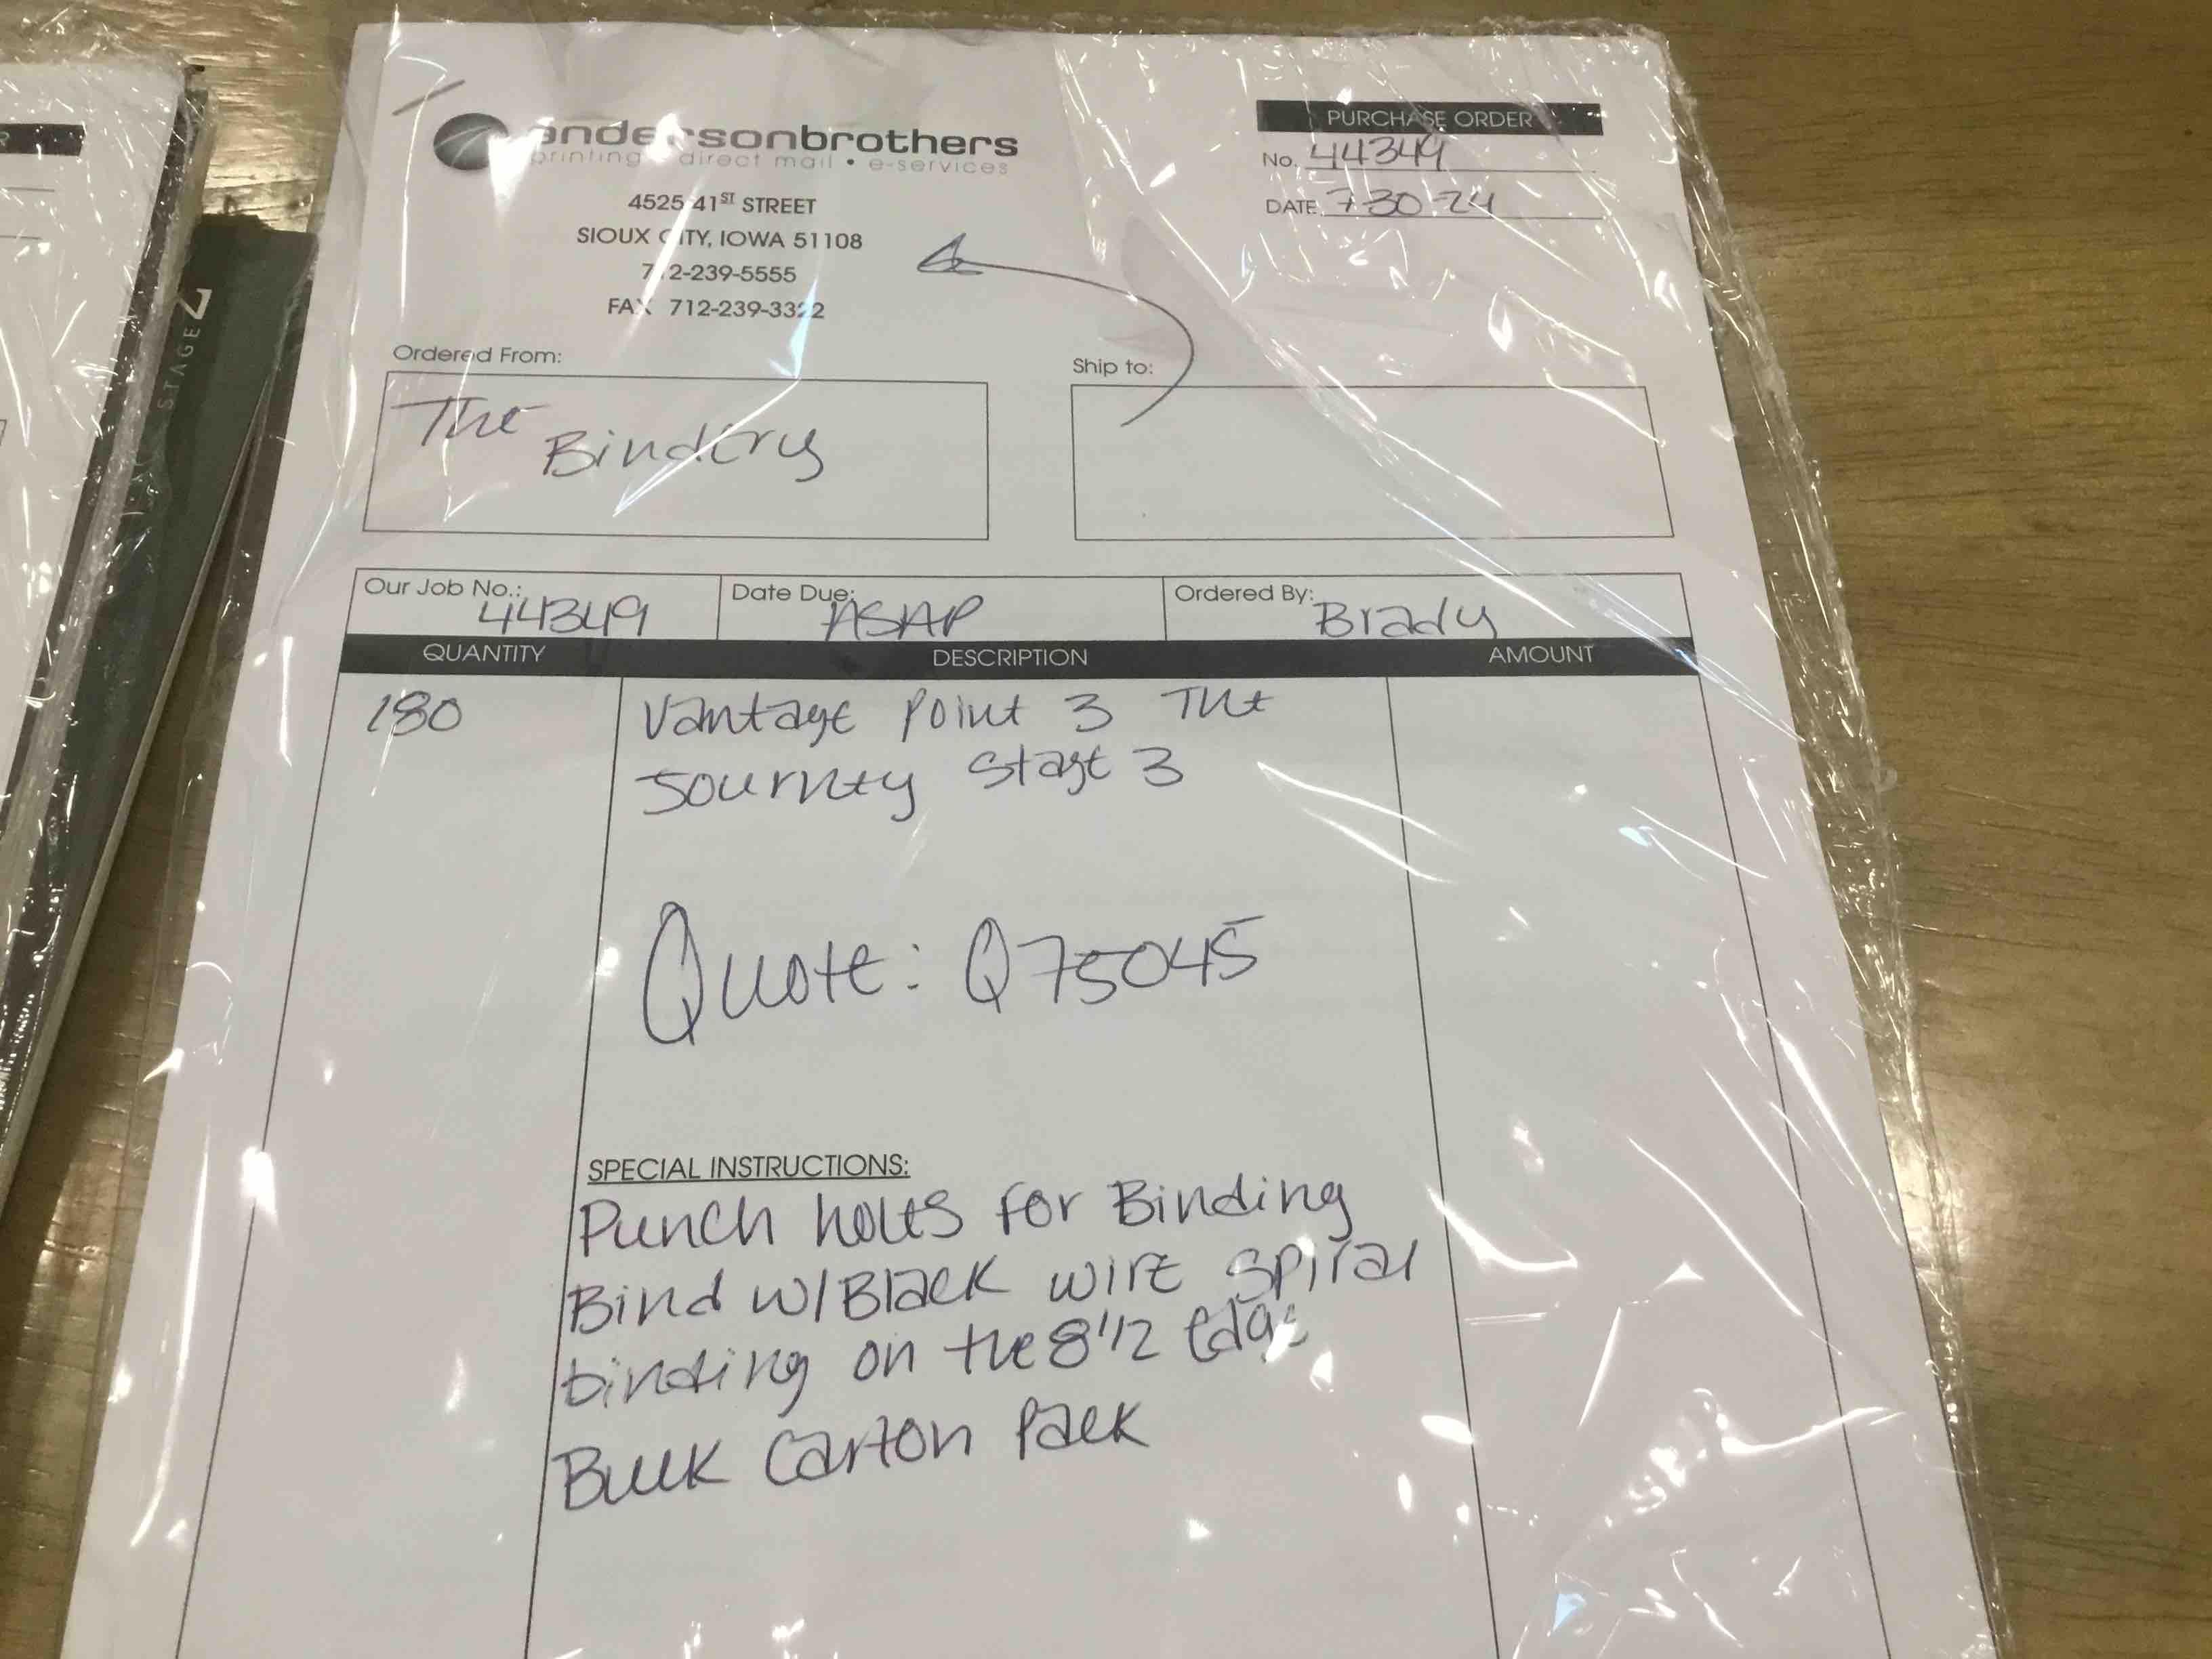 andersonbrothers
printing • direct mail • e-services
4525 41ST STREET
SIOUX CITY, IOWA 51108
712-239-5555
FAX 712-239-3322
PURCHASE ORDER
No. 44349
DATE 7-30-24
Ordered From:
The Bindery
Ship to:
Our Job No.: 44349
Date Due: ASAP
Ordered By: Brady
QUANTITY DESCRIPTION AMOUNT
180 Vantage Point 3 The
Journey Stage 3
Quote: Q75045
SPECIAL INSTRUCTIONS:
Punch holes for Binding
Bind w/Black wire spiral
binding on the 8 1/2 edge
Bulk Carton Pack
STAGE 2